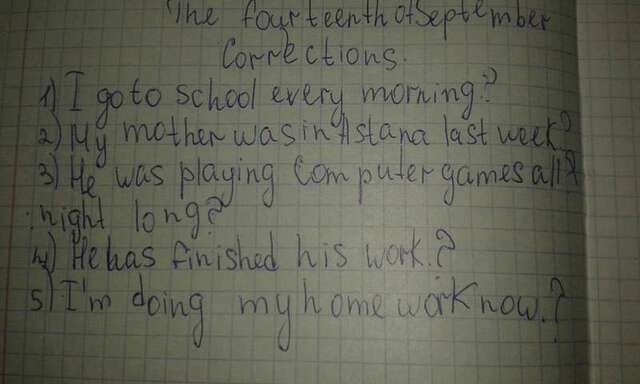 The fourteenth of september
Corrections.
1) I go to school every morning?
2) My mother was in Astana last week?
3) He was playing Computer games all
night long?
4) He has finished his work?
5) I'm doing my home work now?